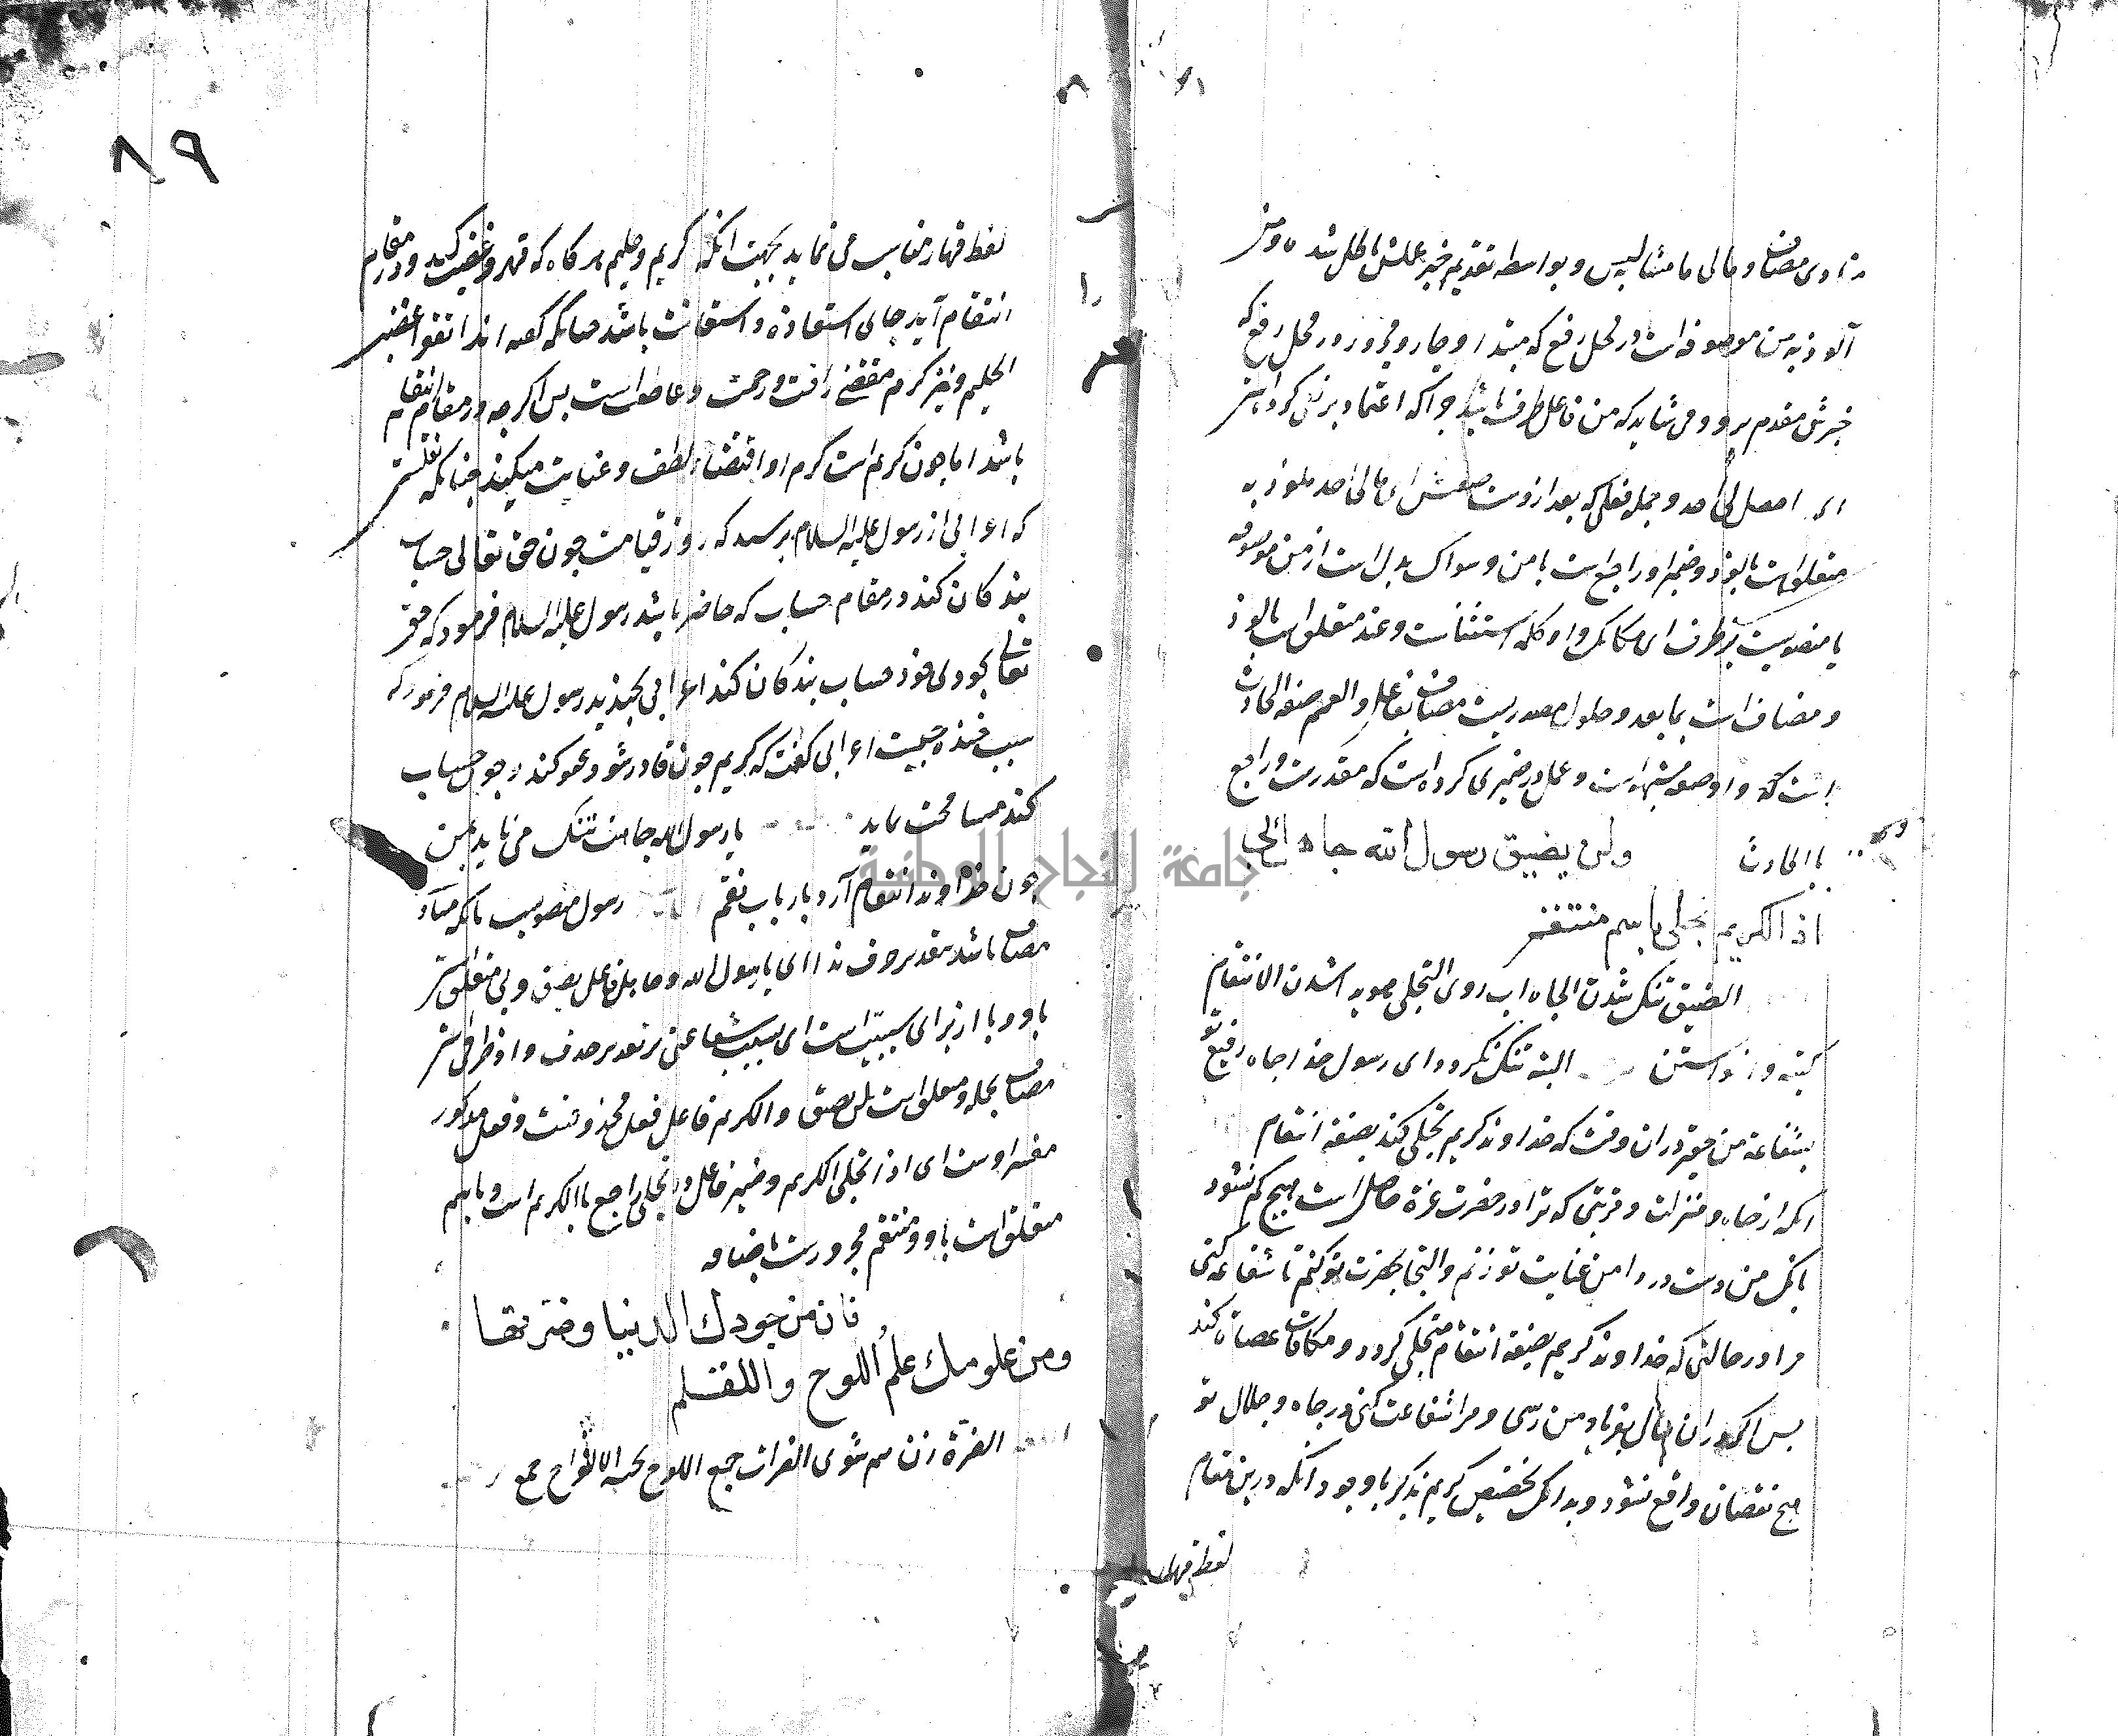 منادی مضاف و مالی ما مشابه لیس و بواسطه تقدیم خبر عملش باطل شده و من
الوذ به من موصوفه است در محل رفع که مبتدا و جار و مجرور در محل رفع که
خبرش مقدم برو و می شاید که من فاعل ظرف باشد چرا که اعتماد بر نفی کرده است
احد و جمله فعلی که بعد ازوست صفتش ای مالی احد الوذ به
متعلق است بالوذ و ضمیر او راجع است با من و سواک بدل است از من موصوفه
یا منصوبست بر ظرف ای مکانک و او کلمه استثناست و عند متعلق است بالوذ
و مضاف است بما بعد و حلول مصدریست مضاف بفاعل و العمم صفة الحادث
است که او صفة مشبهه است و عمل در ضمیری کرده است که مقدرست و راجع
با الحادث ولن يضيق رسول الله جاهك بي
اذا الكريم تجلى باسم منتقم
الضیق تنک شدن الجاه اب روی التجلی هویدا شدن الانتقام
کینه واخواستن البته تنک نکردد ای رسول خدا جاه رفیع تو
بشفاعة من حقیر در ان وقت که خداوند کریم تجلی کند بصفة انتقام
انکه از جاه و منزلت و قربتی که ترا در حضرت عزة حاصل است هیچ کم نشود
بانک من دست در دامن عنایت تو زنم و التجا بحضرت تو کنم تا شفاعه کنی
مرا در حالتی که خداوند کریم بصفة انتقام متجلی کردد و مکافات عصاة کند
بس اکر در ان حال بفریاد من رسی و مرا شفاعت کنی در جاه و جلال تو
هیچ نقصان واقع نشود و بدانک تخصیص کریم بذکر با وجود انکه درین مقام
لفظ قهار
٨٩
لفظ قهار مناسب می نماید بجهت انکه کریم و حلیم هر کاه که قهر و غضب کند و در مقام
انتقام آید جای استعاذه و استعانت باشد چنانکه کفته اند اتقوا غضب
الحلیم و نیز کرم مقتضی رافت و رحمت و عاطفت است بس اکرچه در مقام انتقام
باشد اما چون کریم است کرم او اقتضاء لطف و عنایت میکند چنانکه نقلست
که اعرابی از رسول علیه السلام برسید که روز قیامت چون حق تعالی حساب
بندکان کند در مقام حساب که حاضر باشد رسول علیه السلام فرمود که حق
تعالی بخودی خود حساب بندکان کند اعرابی بخندید رسول علیه السلام فرمود که
سبب خنده چیست اعرابی کفت که کریم چون قادر شود عفو کند و چون حساب
کند مسامحت نماید یا رسول الله جاهت تنک می نیاید بمن
چون خداوند انتقام آرد بارباب نقم رسول منصوبست بانکه منادی
مضاف باشد بتقدیر حرف ندا ای یا رسول الله و جاهک فاعل یضیق و بی متعلق است
باو و با از برای سببیت است ای بسبب شفاعتی بر تقدیر حذف و اذا ظرفی است
مضاف بجمله و متعلق است بلن یضیق و الکریم فاعل فعل محذوفست و فعل مذکور
مفسر اوست ای اذا تجلی الکریم و ضمیر فاعل در تجلی راجع باالکریم است و باسم
متعلق است باو و منتقم مجرورست باضافه
فان من جودك الدنيا وضرتها
ومن علومك علم اللوح والقلم
الضرة زن هم شوی الضرات جمع اللوح تخته الالواح جمع
جامعة النجاح الوطنية